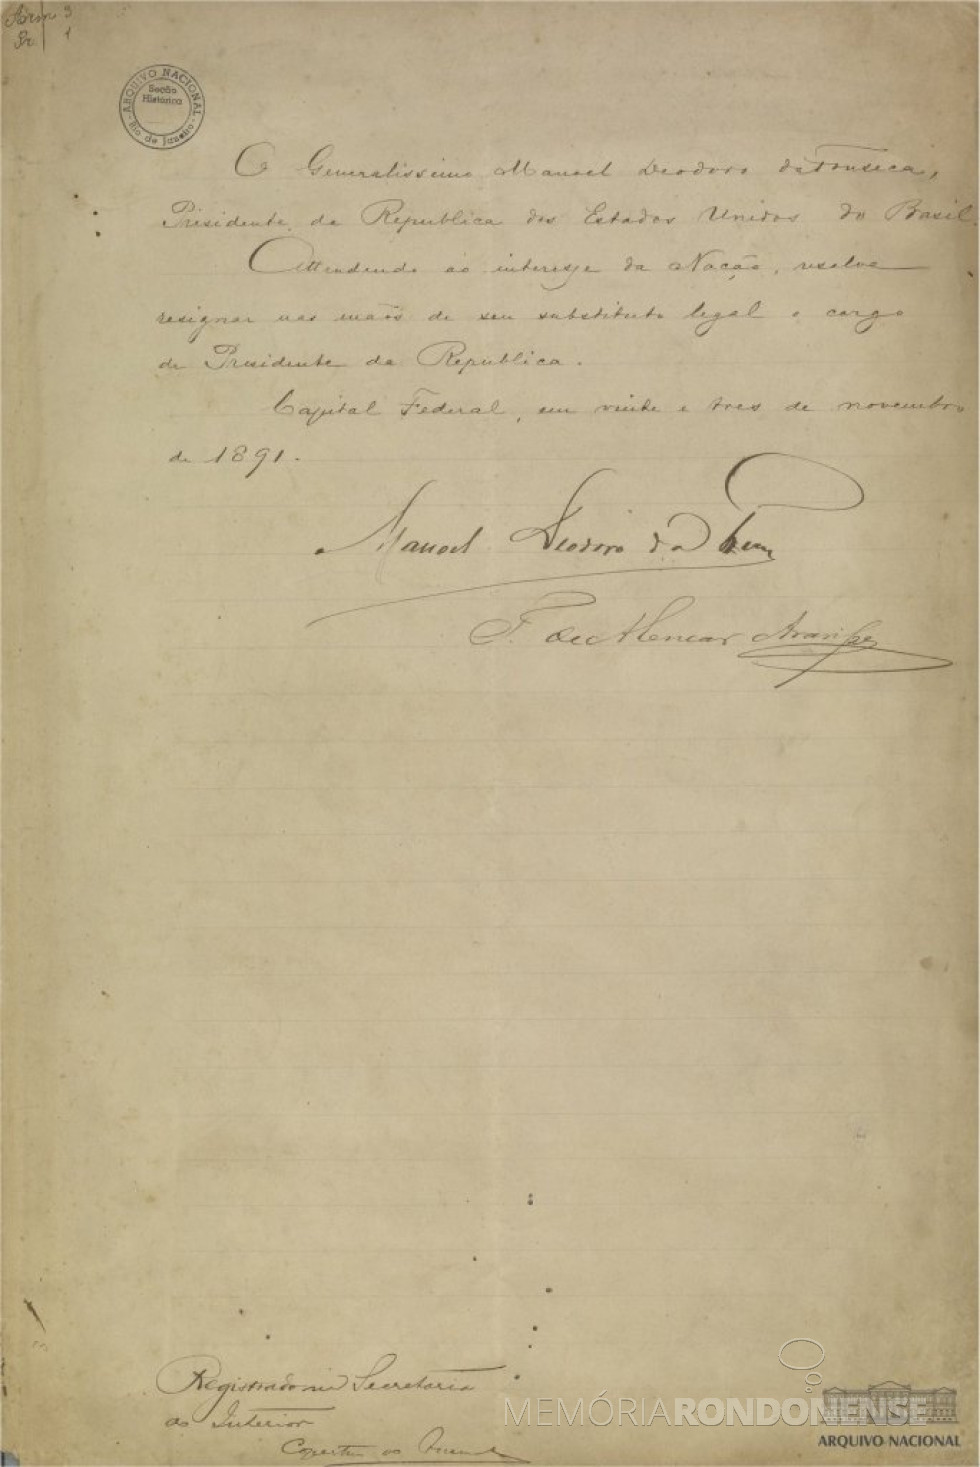 Arm 3
Pr. 1
ARQUIVO NACIONAL
Secão
Histórica
Rio de Janeiro
O Generalissimo Manoel Deodoro da Fonseca,
Presidente da Republica dos Estados Unidos do Brasil.
Attendendo ao interesse da Nação, resolve
resignar nas mãos de seu substituto legal o cargo
de Presidente da Republica.
Capital Federal, em vinte e tres de novembro
de 1891.
Manoel Deodoro da
T. de Alencar Araripe
Registrado na Secretaria
do Interior
MEMÓRIARONDONENSE
ARQUIVO NACIONAL